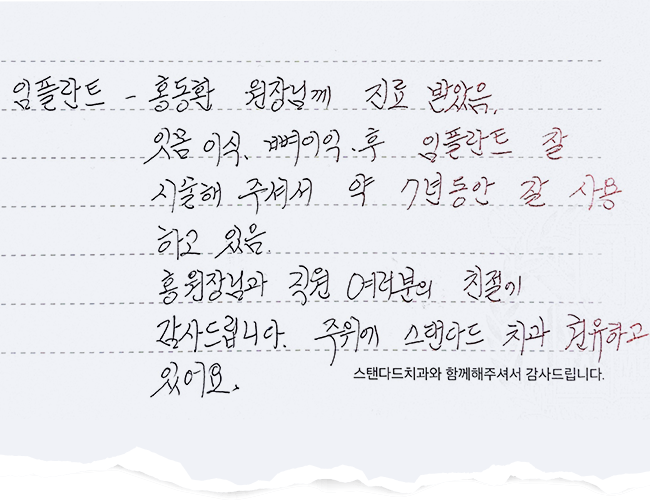 임플란트 - 홍동환 원장님께 진료 받았음.
잇몸 이식, 뼈이식 후 임플란트 잘
시술해 주셔서 약 7년동안 잘 사용
하고 있음.
홍원장님과 직원 여러분의 친절이
감사드립니다. 주위에 스탠다드 치과 권유하고
있어요.
스탠다드치과와 함께해주셔서 감사드립니다.